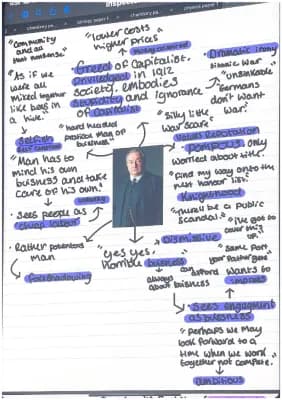 Inspector
"lower costs
higher prices"
"community
and all
that nonsense."
Greed of Capitalist.
Privileged in 1912
society, embodies
Stupidity and Ignorance
of Capitalist
Dramatic Irony
Titanic War
"unsinkable"
"Germans
don't want
War."
"As if we
were all
mixed together
like bees in
a hive."
Selfish
"hard headed
practical man of
business"
"silly little
war scare"
Values Reputation
pompous, only
worried about title.
"Find my way onto the
next honour list."
Knighthood
"There'll be a public
scandal"
"I've got to
cover this
up."
"Man has to
mind his own
business and take
care of his own."
Sees people as
cheap labour
Rather portentous
man
foreshadowing
"yes yes.
horrible business"
always
about business
Dismissive
"Same port
your father gets"
Wants to
impress
Sees engagment
as business
"Perhaps we may
look forward to a
time when we work
together not compete.
ambitious